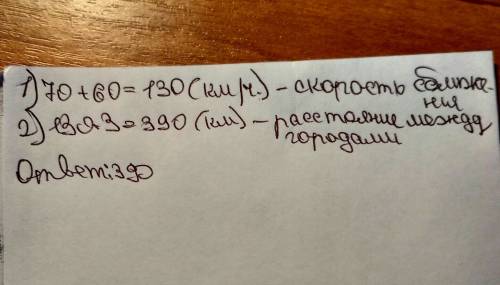 1) 70+60=130 (км/ч.) – скорость сближе-
ния
2) 130·3=390 (км) – расстояние между
городами
Ответ: 390